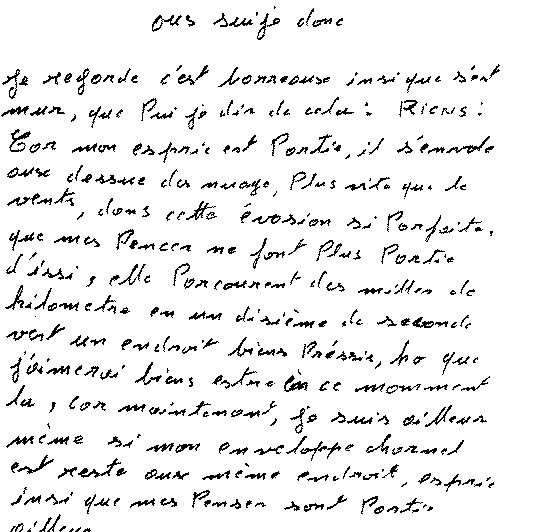 ous suije donc
Je regarde c'est borreaux insi que s'est
mur, que Pui je dir de cela : RIENS :
Car mon esprie est Partie, il s'envole
aux dessue des nuage, Plus vite que le
vents, dans cette évasion si Parfaite,
que mes Pencer ne font Plus Partie
d'issi, elle Parcourent des millier de
kilometre en un disième de seconde
vert un endroit biens Préssie, ho que
j'aimerai biens estre en ce momment
la, car maintenant, je suis ailleur
même si mon enveloppe charnel
est reste aux même endroit, esprie
insi que mes Penser sont Partie
ailleur